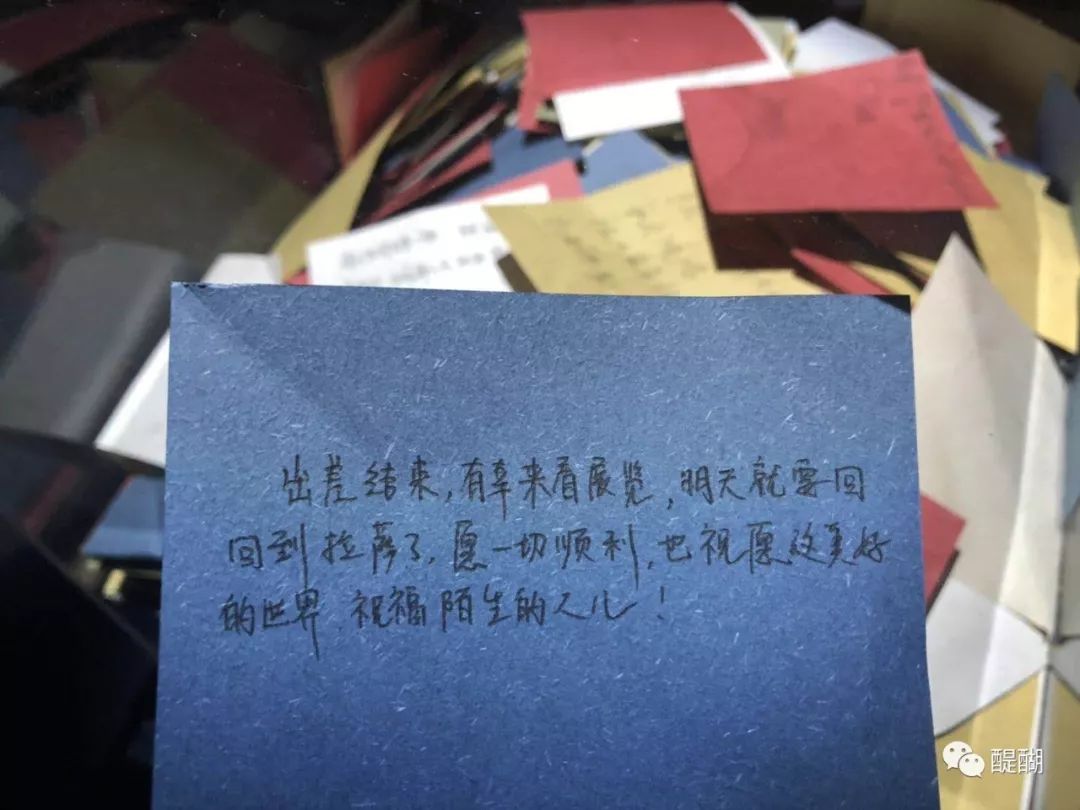 出差结束,有幸来看展览,明天就要回
回到拉萨了,愿一切顺利,也祝愿这美好
的世界.祝福陌生的人儿!
醍醐